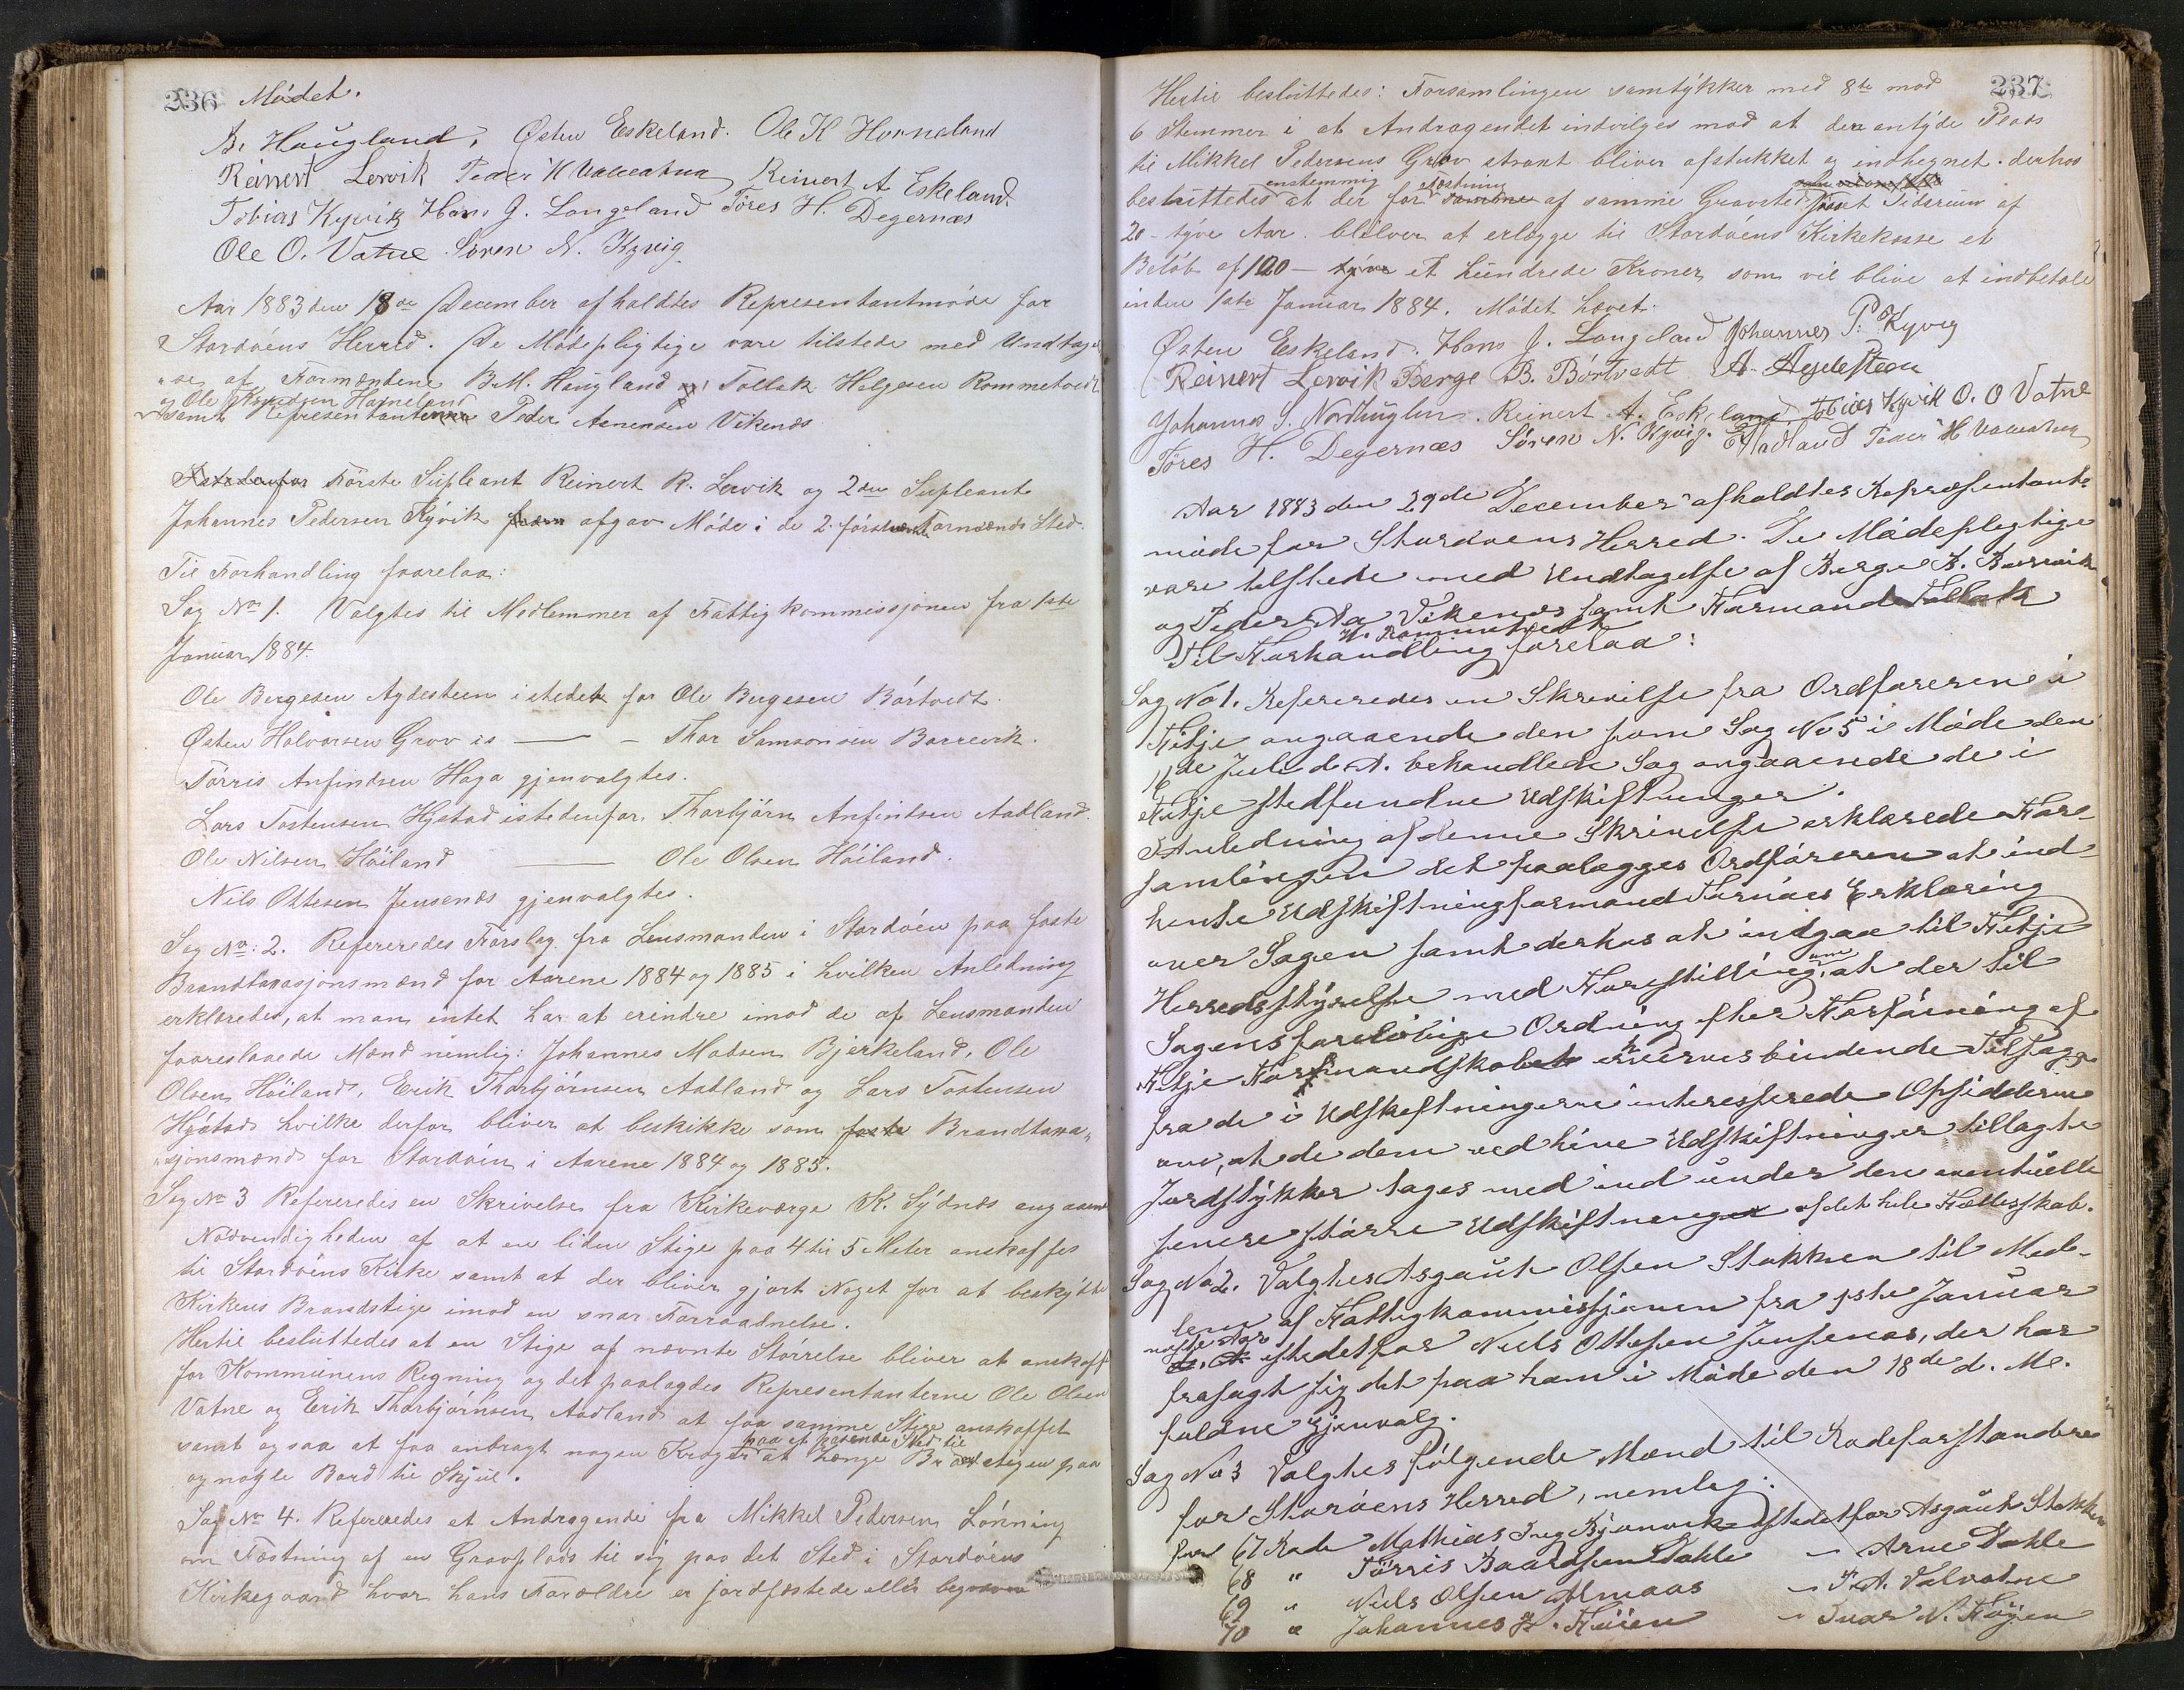 236 Mödet.
B. Haugland, Östen Eskeland. Ole K Horneland
Reinert Lervik Peder H Valvatna Reinert A Eskeland.
Tobias Kyvik Hans J. Langeland Töres H. Degernæs
Ole O. Vatne Sören N. Kyvig
Aar 1883 den 18de December afholdtes Representantmöde for
Stordöens Herred. De Mödepligtige vare tilstede med Undtagel
"se af Formændene B.M. Haugland og Tollak Helgesen Rommetvedt
og Ole Horneland
samt Representanterne Peder Arnesen Vikenæs
Förste Supleant Reinert R. Lervik og 2den Supleant
Johannes Pedersen Kyvik afgav Möde i de 2 förstnævnte Formænds Sted.
Til Forhandling forelaa:
Sag No 1. Valgtes til Medlemmer af Fattigkommissjonen fra 1ste
Januar 1884.
Ole Bergesen Agdesteen istedet for Ole Bergesen Börtvedt.
Östen Halvorsen Grov is — – Thor Samsonsen Borrevik.
Törris Anfindsen Haga gjenvalgtes.
Lars Tostensen Hystad istedenfor Thorbjörn Anfindsen Aadland.
Ole Nilsen Höiland — Ole Olsen Höiland.
Nils Ottesen Jensenæs gjenvalgtes.
Sag No: 2. Refereredes Forslag fra Lensmanden i Stordöen paa faste
Brandtaxasjonsmænd for Aarene 1884 og 1885 i hvilken Anledning
erklæredes, at man intet har at erindre imod de af Lensmanden
foreslaaede Mænd nemlig: Johannes Matsen Bjerkeland, Ole
Olsen Höiland, Erik Thorbjörnsen Aadland og Lars Tostensen
Hystad hvilke derfor bliver at beskikke som faste Brandtaxa"
"sjonsmænd for Stordöen i Aarene 1884 og 1885.
Sag No 3 Refereredes en Skrivelse fra Kirkeværge K. Sydnæs angaaende
Nødvendigheden af at en liden Stige paa 4 til 5 Meter anskaffes
til Stordöens Kirke samt at der bliver gjort Noget for at beskytte
Kirkens Brandstige imod en snar Forraadnelse.
Hertil besluttedes at en Stige af nævnte Störrelse bliver at anskaffe
for Kommunens Regning og det paalagdes Representanterne Ole Olsen
Vatne og Erik Thorbjörnsen Aadland at faa samme Stige anskaffet
samt ogsaa at faa anbragt nogen Kroger paa et passende Sted til at hænge Brandstigen paa
og nogle Bord til Skjul.
Sag No 4. Refereredes et Andragende fra Mikkel Pedersen Lönning
om Fæstning af en Gravplads til sig paa det Sted i Stordöens
Kirkegaard hvor hans Forældre er jordfæstede eller begravne
237
Hertil besluttedes: Forsamlingen samtykker med 8te mod
6 Stemmer i at Andragendet indvilges mod at den antyde Plads
til Mikkel Pedersens Grav straxt bliver afstukket og indhegnet. derhos
besluttedes enstemmig at der for Fæstning af samme Gravsted i et Tidsrum af
20 - tyve Aar. bliver at erlægge til Stordöens Kirkekasse et
Belöb af 100 – et hundrede Kroner, som vil blive at indbetale
inden 1ste Januar 1884. Mödet hævet.
Östen Eskeland. Hans J. Langeland Johannes P. Kyvig
Reinert Lervik Berge B. Börtvedt A. Agdesteen
Johannes S. Nordhuglen. Reinert A. Eskeland Tobias Kyvik O. O Vatne
Töres H. Degernæs Sören N. Kyvig. E Aadland Peder H Valvatna
Aar 1883 den 29de December afholdtes Repræsentant-
möde for Stordöens Herred. De Mödepligtige
vare tilstede med Undtagelse af Berge B. Borrevik
og Peder Aa Vikenæs samt Formand Tollak
H. Rommetvedt
Til Forhandling forelaa:
Sag No 1. Refereredes en Skrivelse fra Ordföreren i
Fitje angaaende den som Sag No 5 i Möde den
11de Juli d. A. behandlede Sag angaaende de i
Fitje stedfundne Udskiftninger.
I Anledning af denne Skrivelse erklærede For-
samlingen det paalægges Ordföreren at ind-
hente Udskiftningsformand Erklæring
over Sagen samt derhos at indgaa til Fitje
Herredsstyrelse med Forestilling om, at der til
Sagens foreløbige Ordning efter Forföining af
Fitje Formandskab erhverves bindende Tilsagn
fra de i Udskiftningerne interesserede Opsiddere
om, at de dem ved hine Udskiftninger tillagte
Jordstykker tages med ind under den eventuelle
senere större Udskiftning af det hele Fælledskab.
Sag No 2. Valgtes Asgaut Olsen Stokken til Med-
lem af Fattigkommissjonen fra 1ste Januar
næste Aar istedetfor Niels Ottesen Jensenæs, der har
frasagt sig det paa ham i Möde den 18de d. M.
faldne Gjenvalg.
Sag No 3 Valgtes fölgende Mænd til Rodeforstandere
for Stordöens Herred, nemlig:
for 67 Rode Mathias Ingebr. istedetfor Asgaut Stokken
68 " Törris Baardsen Dahle – " Arne Dahle
69 " Niels Olsen Almaas – " T. A. Valvatne
70 " Johannes J. Höien – " Ivar N. Höyen